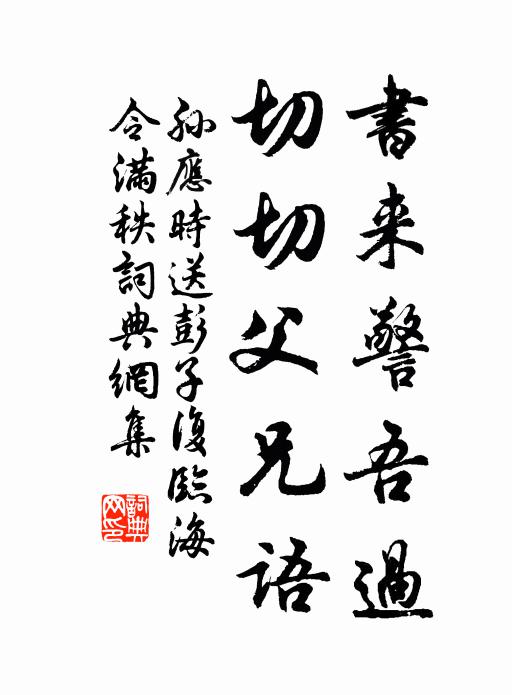 書来警吾過
切切父兄語
孫應時送彭子復臨海
令滿秩詞典網集
詞典网印